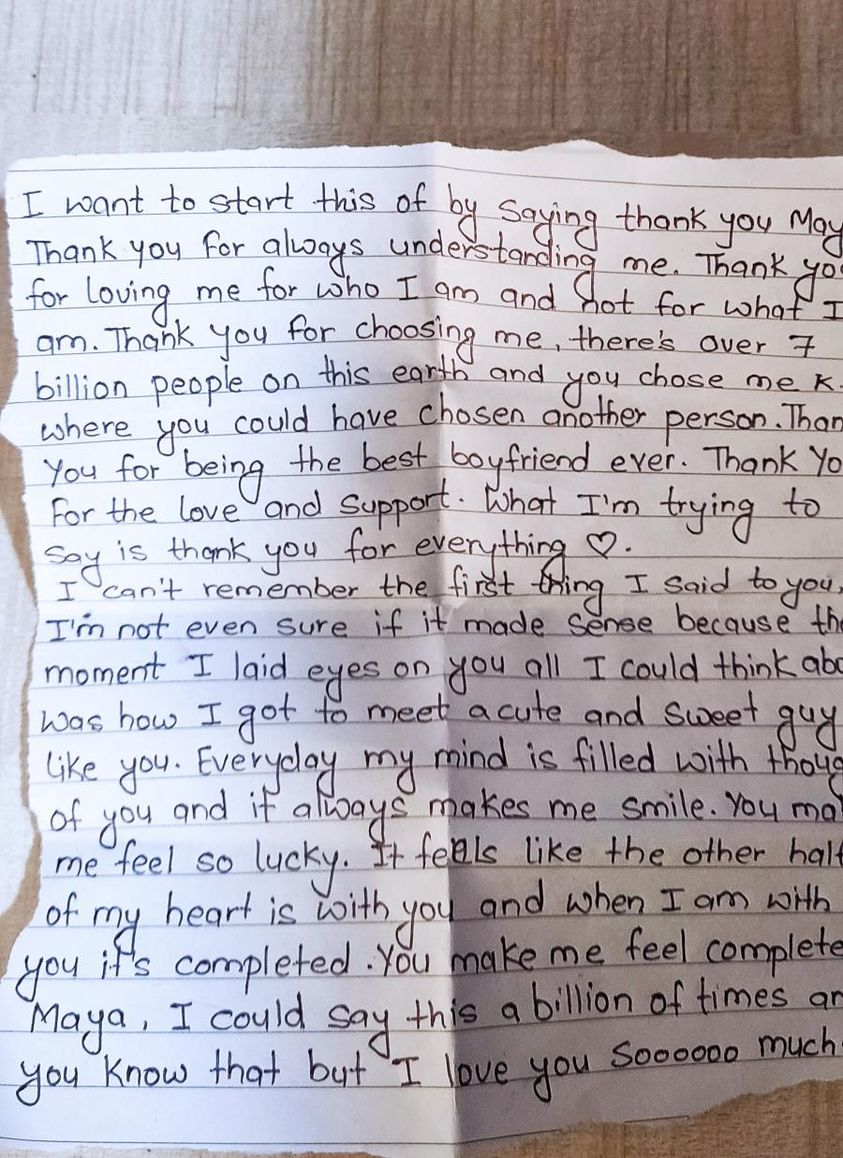 I want to start this of by saying thank you May
Thank you for always understanding me. Thank yo
for loving me for who I am and not for what I
am. Thank you for choosing me, there's over 7
billion people on this earth and you chose me K.
where you could have chosen another person. Than
You for being the best boyfriend ever. Thank Yo
For the love and support. What I'm trying to
say is thank you for everything ♡.
I can't remember the first thing I said to you,
I'm not even sure if it made sense because th
moment I laid eyes on you all I could think abo
was how I got to meet a cute and sweet guy
like you. Everyday my mind is filled with thoug
of you and it always makes me smile. You ma
me feel so lucky. It feels like the other half
of my heart is with you and when I am with
you it's completed. You make me feel complete
Maya, I could say this a billion of times an
you know that but I love you soooooo much